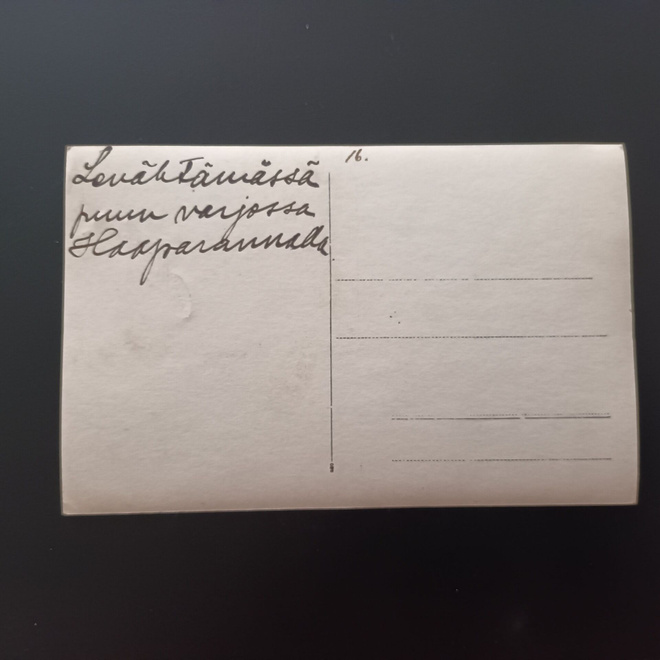 Levähtämässä
puun varjossa
Haaparannalla
16.